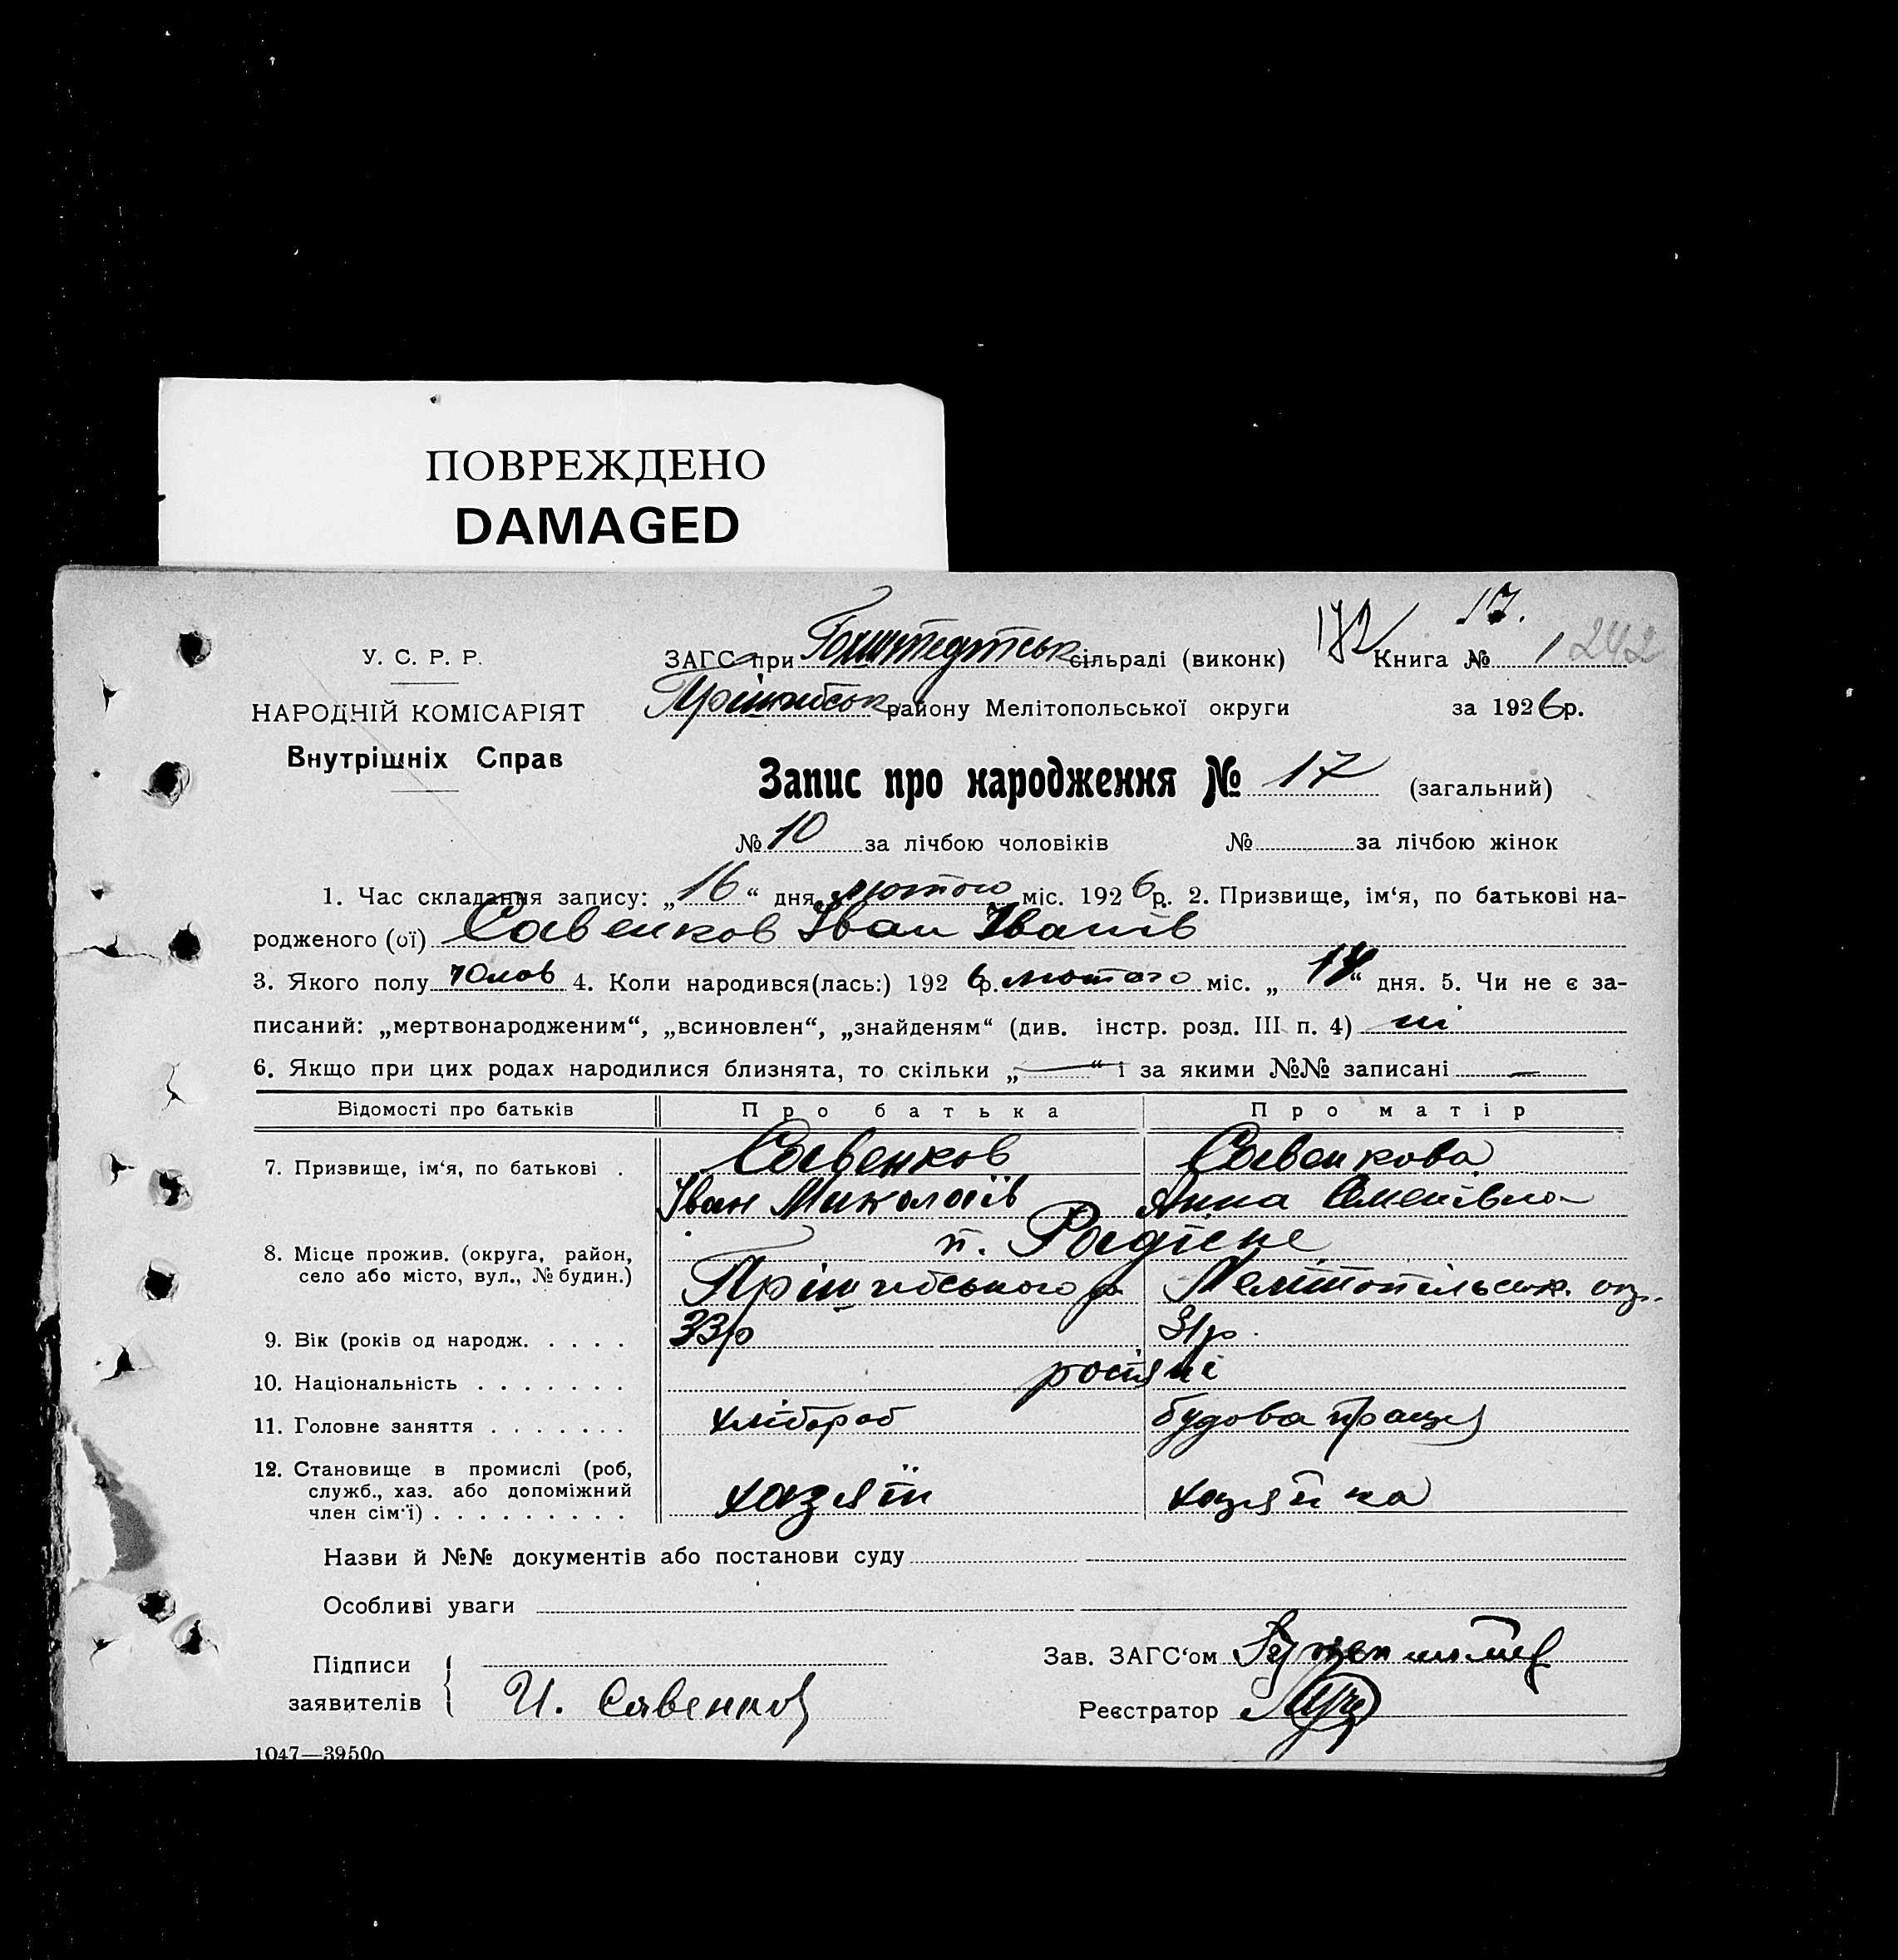 ПОВРЕЖДЕНО
DAMAGED
17.
У. С. Р. Р.
ЗАГС при Гохштедтськ сільраді (виконк) 182 Книга № 1 242
НАРОДНІЙ КОМІСАРІЯТ
Внутрішніх Справ
Прішибськ району Мелітопольської округи за 1926р.
Запис про народження № 17 (загальний)
№ 10 за лічбою чоловіків № за лічбою жінок
1. Час складання запису: „16“ дня лютого міс. 1926р. 2. Призвище, ім‘я, по батькові на-
родженого (ої) Савенков Іван Іванів
3. Якого полу чолов 4. Коли народився(лась:) 1926р. лютого міс. „14“ дня. 5. Чи не є за-
писаний: „мертвонародженим“, „всиновлен“, „знайденям“ (див. інстр. розд. III п. 4) ні
6. Якщо при цих родах народилися близнята, то скільки „—“ і за якими №№ записані —
Відомості про батьків Про батька Про матір
7. Призвище, ім‘я, по батькові . Савенков Савенкова
Іван Миколаїв Анна Семенівна
8. Місце прожив. (округа, район, п.
село або місто, вул., № будин.) Прішибського р Мелітопільськ. ок.
9. Вік (років од народж. . . . . 33р 31р.
10. Національність . . . . . . . росіяні
11. Головне заняття . . . . . . . хлібороб будова праця
12. Становище в промислі (роб,
служб., хаз. або допоміжний
член сім‘ї) . . . . . . . . . хазяїн хазяйка
Назви й №№ документів або постанови суду
Особливі уваги
Підписи
заявителів И. Савенков
Зав. ЗАГС‘ом
Реєстратор
1047—39500